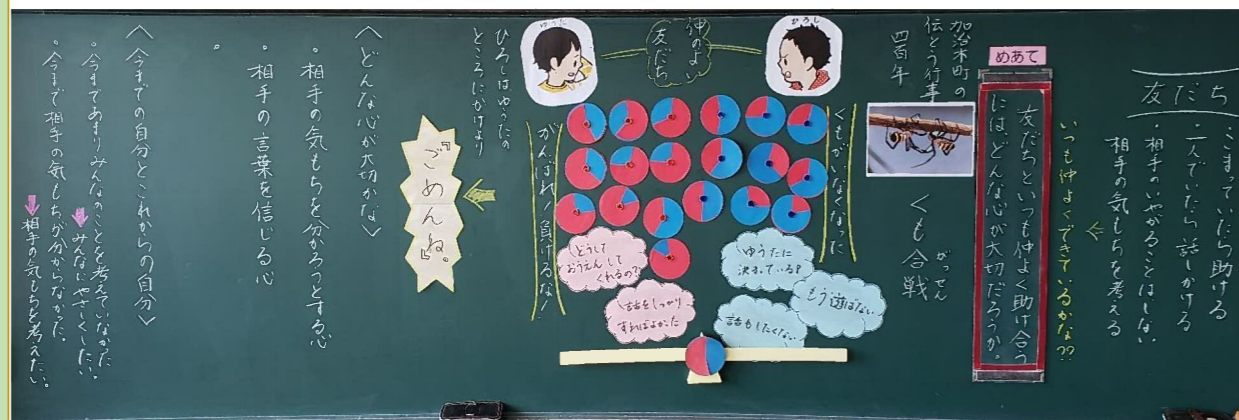 友だち
こまっていたら助ける
・一人でいたら話しかける
・相手のいやがることはしない
相手の気もちを考える
いつも仲よくできているかな??
めあて
友だちといつも仲よく助け合う
には、どんな心が大切だろうか。
加治木町の
伝とう行事
四百年
くも合戦
がっせん
ひろし
仲のよい
友だち
ゆうた
くもがいなくなった
ゆうたに
決まっている!
もう遊ばない
話もしたくない
がんばれ!負けるな!
どうして
おうえんして
くれるの?
話をしっかり
すればよかった
ひろしはゆうたの
ところにかけより
『ごめんね。』
〈どんな心が大切かな〉
・相手の気もちを分かろうとする心
・相手の言葉を信じる心
〈今までの自分とこれからの自分〉
・今まであまりみんなのことを考えていなかった
みんなにやさしくしたい。
・今まで相手の気もちが分からなかった。
相手の気もちを考えたい。